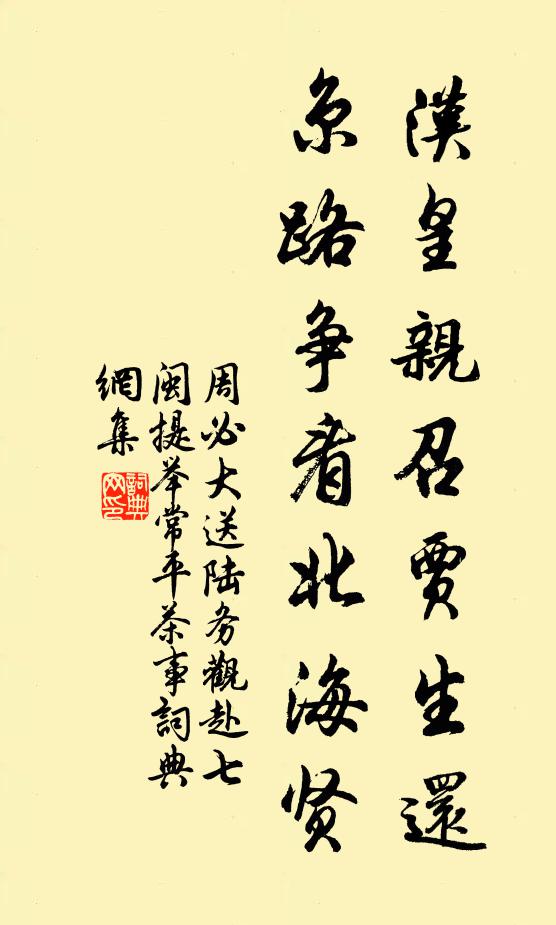 漢皇親召賈生還
京路争看北海贤
周必大送陆务觀赴七
闽提举常平茶事詞典
網集
詞典網印